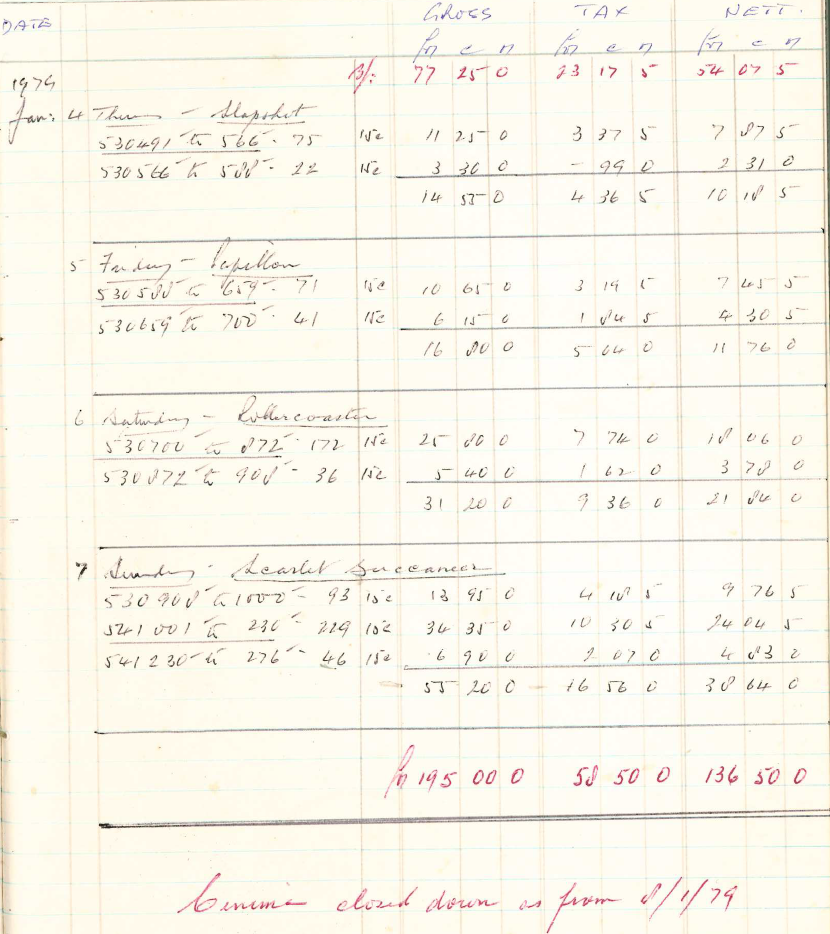 GROSS TAX NETT.
DATE £m c m £m c m £m c m
1979 B/: 77 25 0 23 17 5 54 07 5
Jan: 4 Thurs - Slapshot
530491 to 566 - 75 15c 11 25 0 3 37 5 7 87 5
530566 to 588 - 22 15c 3 30 0 - 99 0 2 31 0
14 55 0 4 36 5 10 18 5
5 Friday - Papillon
530588 to 659 - 71 15c 10 65 0 3 19 5 7 45 5
530659 to 700 - 41 15c 6 15 0 1 84 5 4 30 5
16 80 0 5 04 0 11 76 0
6 Saturday - Rollercoaster
530700 to 872 - 172 15c 25 80 0 7 74 0 18 06 0
530872 to 908 - 36 15c 5 40 0 1 62 0 3 78 0
31 20 0 9 36 0 21 84 0
7 Sunday - Scarlet Buccaneer
530908 to 1000 - 93 15c 13 95 0 4 18 5 9 76 5
541001 to 230 - 229 15c 34 35 0 10 30 5 24 04 5
541230 to 276 - 46 15c 6 90 0 2 07 0 4 83 0
55 20 0 - 16 56 0 38 64 0
£m 195 00 0 58 50 0 136 50 0
Cinema closed down as from 8/1/79